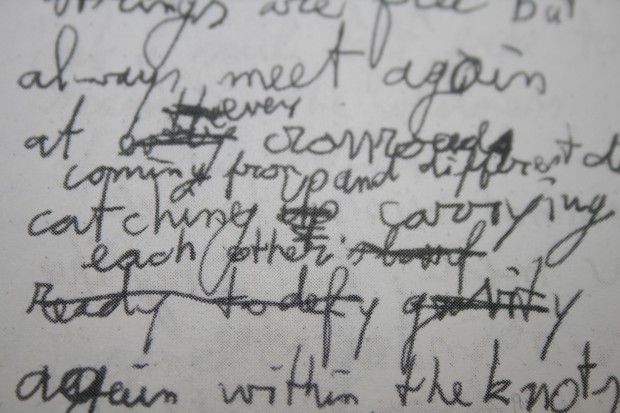 strings are free but
always meet again
every
at crossroads
coming from and different
catching up carrying
each other's hand
ready to defy gravity
again within the knots